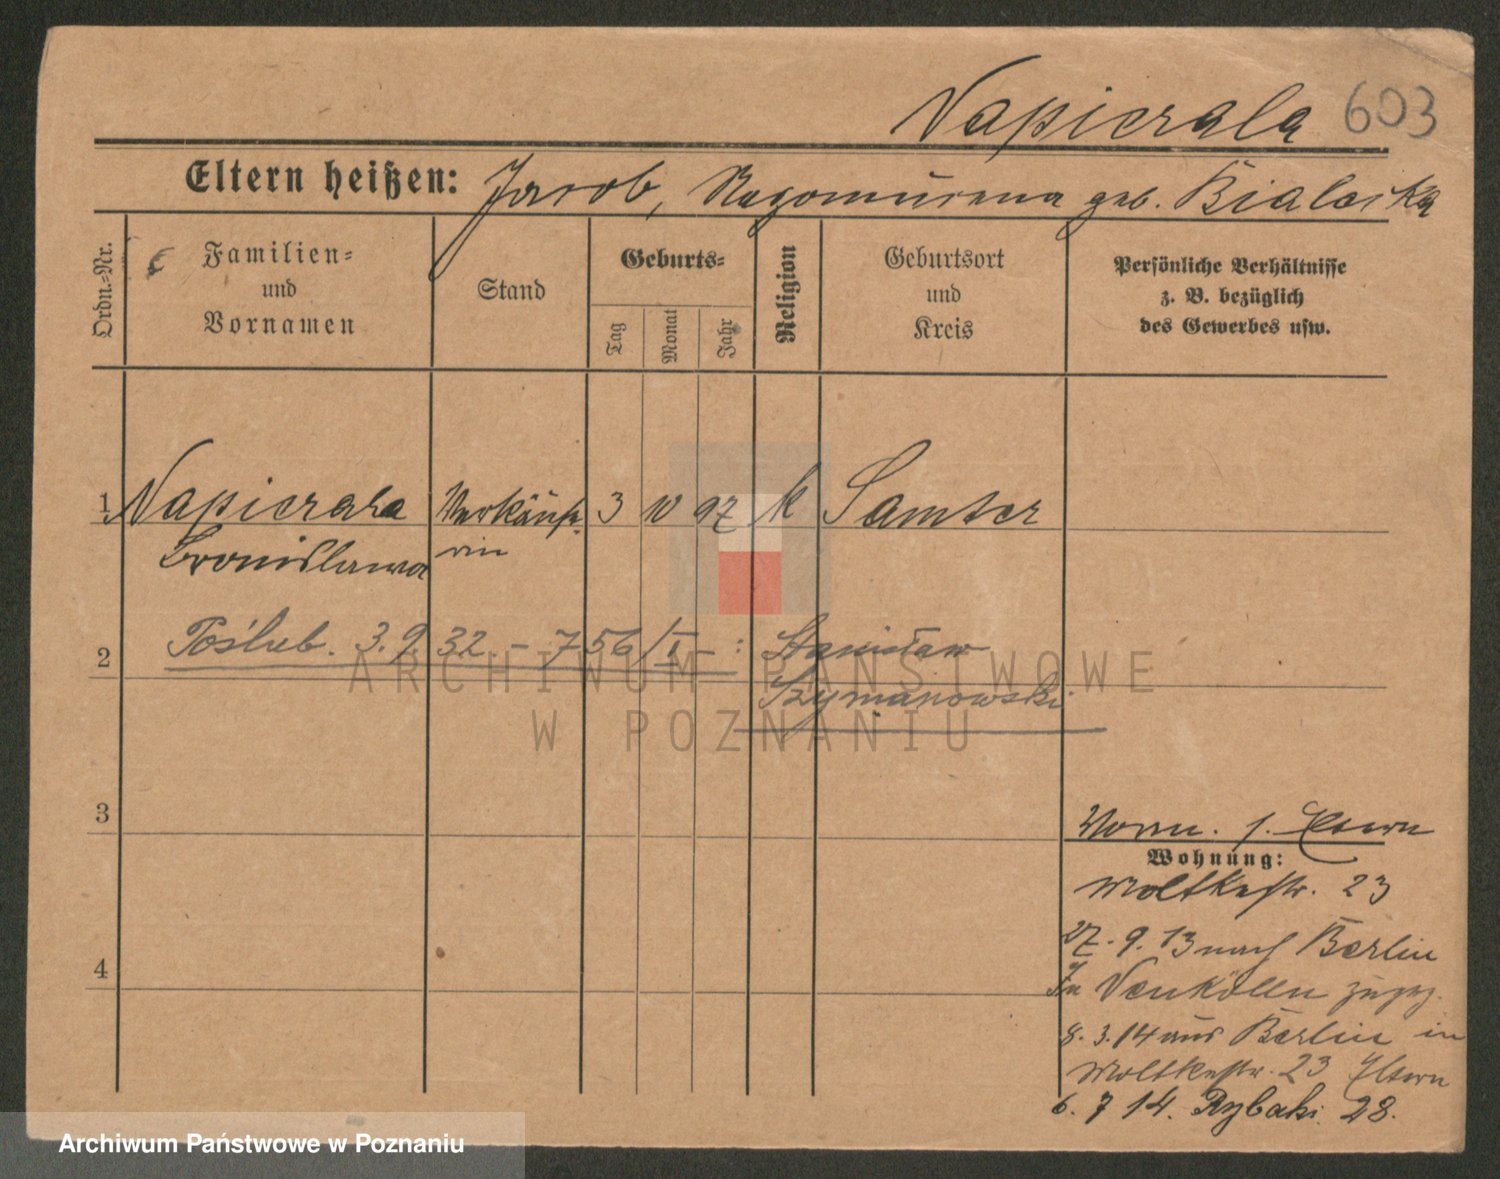 Napierala 603
Eltern heißen: Jacob, Nepomucena geb. Bialecka
Ordn.-Nr.
Familien-
und
Vornamen
Stand
Geburts-
Tag
Monat
Jahr
Religion
Geburtsort
und
Kreis
Persönliche Verhältnisse
z. B. bezüglich
des Gewerbes usw.
1 Napierala Verkäufe- 3 10 97 k Samter
Bronislawa rin
2 Poślub. 3.9 32 - 756/I - : Stanisław
Szymanowski
3
Eltern
Wohnung:
Moltkestr. 23
27. 9. 13 nach Berlin
In Neukölln zugez.
8. 3. 14 aus Berlin in
Moltkestr. 23 Eltern
4
6. 7 14. Rybaki. 28.
ARCHIWUM PAŃSTWOWE
W POZNANIU
Archiwum Państwowe w Poznaniu